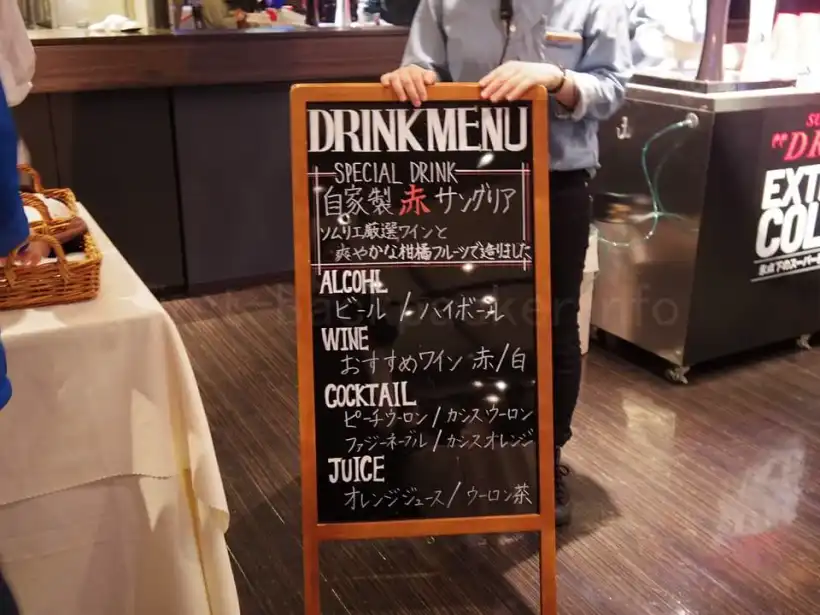 DRINK MENU
SPECIAL DRINK
自家製 赤 サングリア
ソムリエ厳選ワインと
爽やかな柑橘フルーツで造りました
ALCOHL
ビール / ハイボール
WINE
おすすめワイン 赤/白
COCKTAIL
ピーチウーロン / カシスウーロン
ファジーネーブル / カシスオレンジ
JUICE
オレンジジュース / ウーロン茶
SU
"DR
EXT
COL
氷点下のスーパー